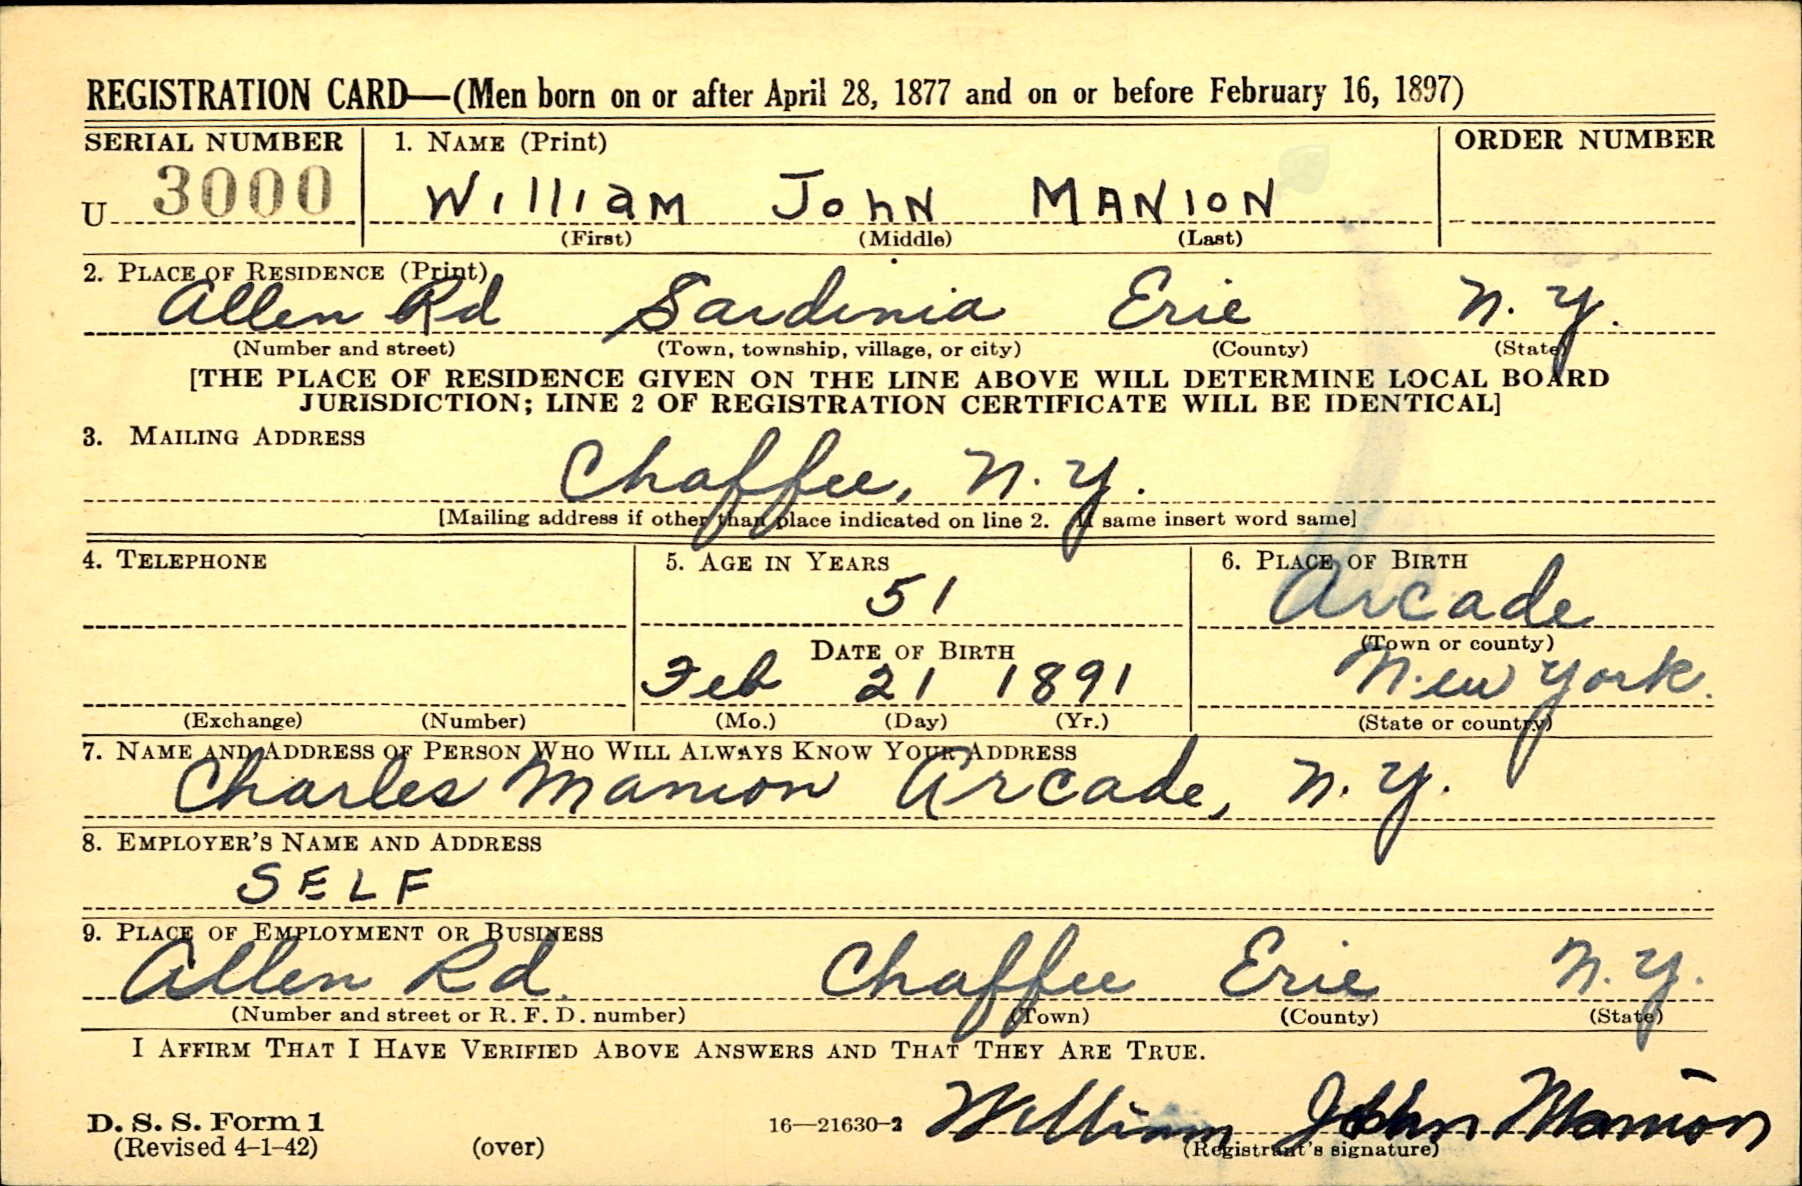 REGISTRATION CARD—(Men born on or after April 28, 1877 and on or before February 16, 1897)
SERIAL NUMBER 1. NAME (Print) ORDER NUMBER
U 3000 William John MANION
(First) (Middle) (Last)
2. PLACE OF RESIDENCE (Print)
Allen Rd Sardinia Erie N. Y.
(Number and street) (Town, township, village, or city) (County) (State)
[THE PLACE OF RESIDENCE GIVEN ON THE LINE ABOVE WILL DETERMINE LOCAL BOARD
JURISDICTION; LINE 2 OF REGISTRATION CERTIFICATE WILL BE IDENTICAL]
3. MAILING ADDRESS
Chaffee, N. Y.
[Mailing address if other than place indicated on line 2. If same insert word same]
4. TELEPHONE 5. AGE IN YEARS 6. PLACE OF BIRTH
51 Arcade
DATE OF BIRTH (Town or county)
Feb 21 1891 New York.
(Exchange) (Number) (Mo.) (Day) (Yr.) (State or country)
7. NAME AND ADDRESS OF PERSON WHO WILL ALWAYS KNOW YOUR ADDRESS
Charles Manion Arcade, N. Y.
8. EMPLOYER'S NAME AND ADDRESS
SELF
9. PLACE OF EMPLOYMENT OR BUSINESS
Allen Rd. Chaffee Erie N. Y.
(Number and street or R. F. D. number) (Town) (County) (State)
I AFFIRM THAT I HAVE VERIFIED ABOVE ANSWERS AND THAT THEY ARE TRUE.
D. S. S. Form 1 16—21630-2 William John Manion
(Revised 4-1-42) (over) (Registrant's signature)